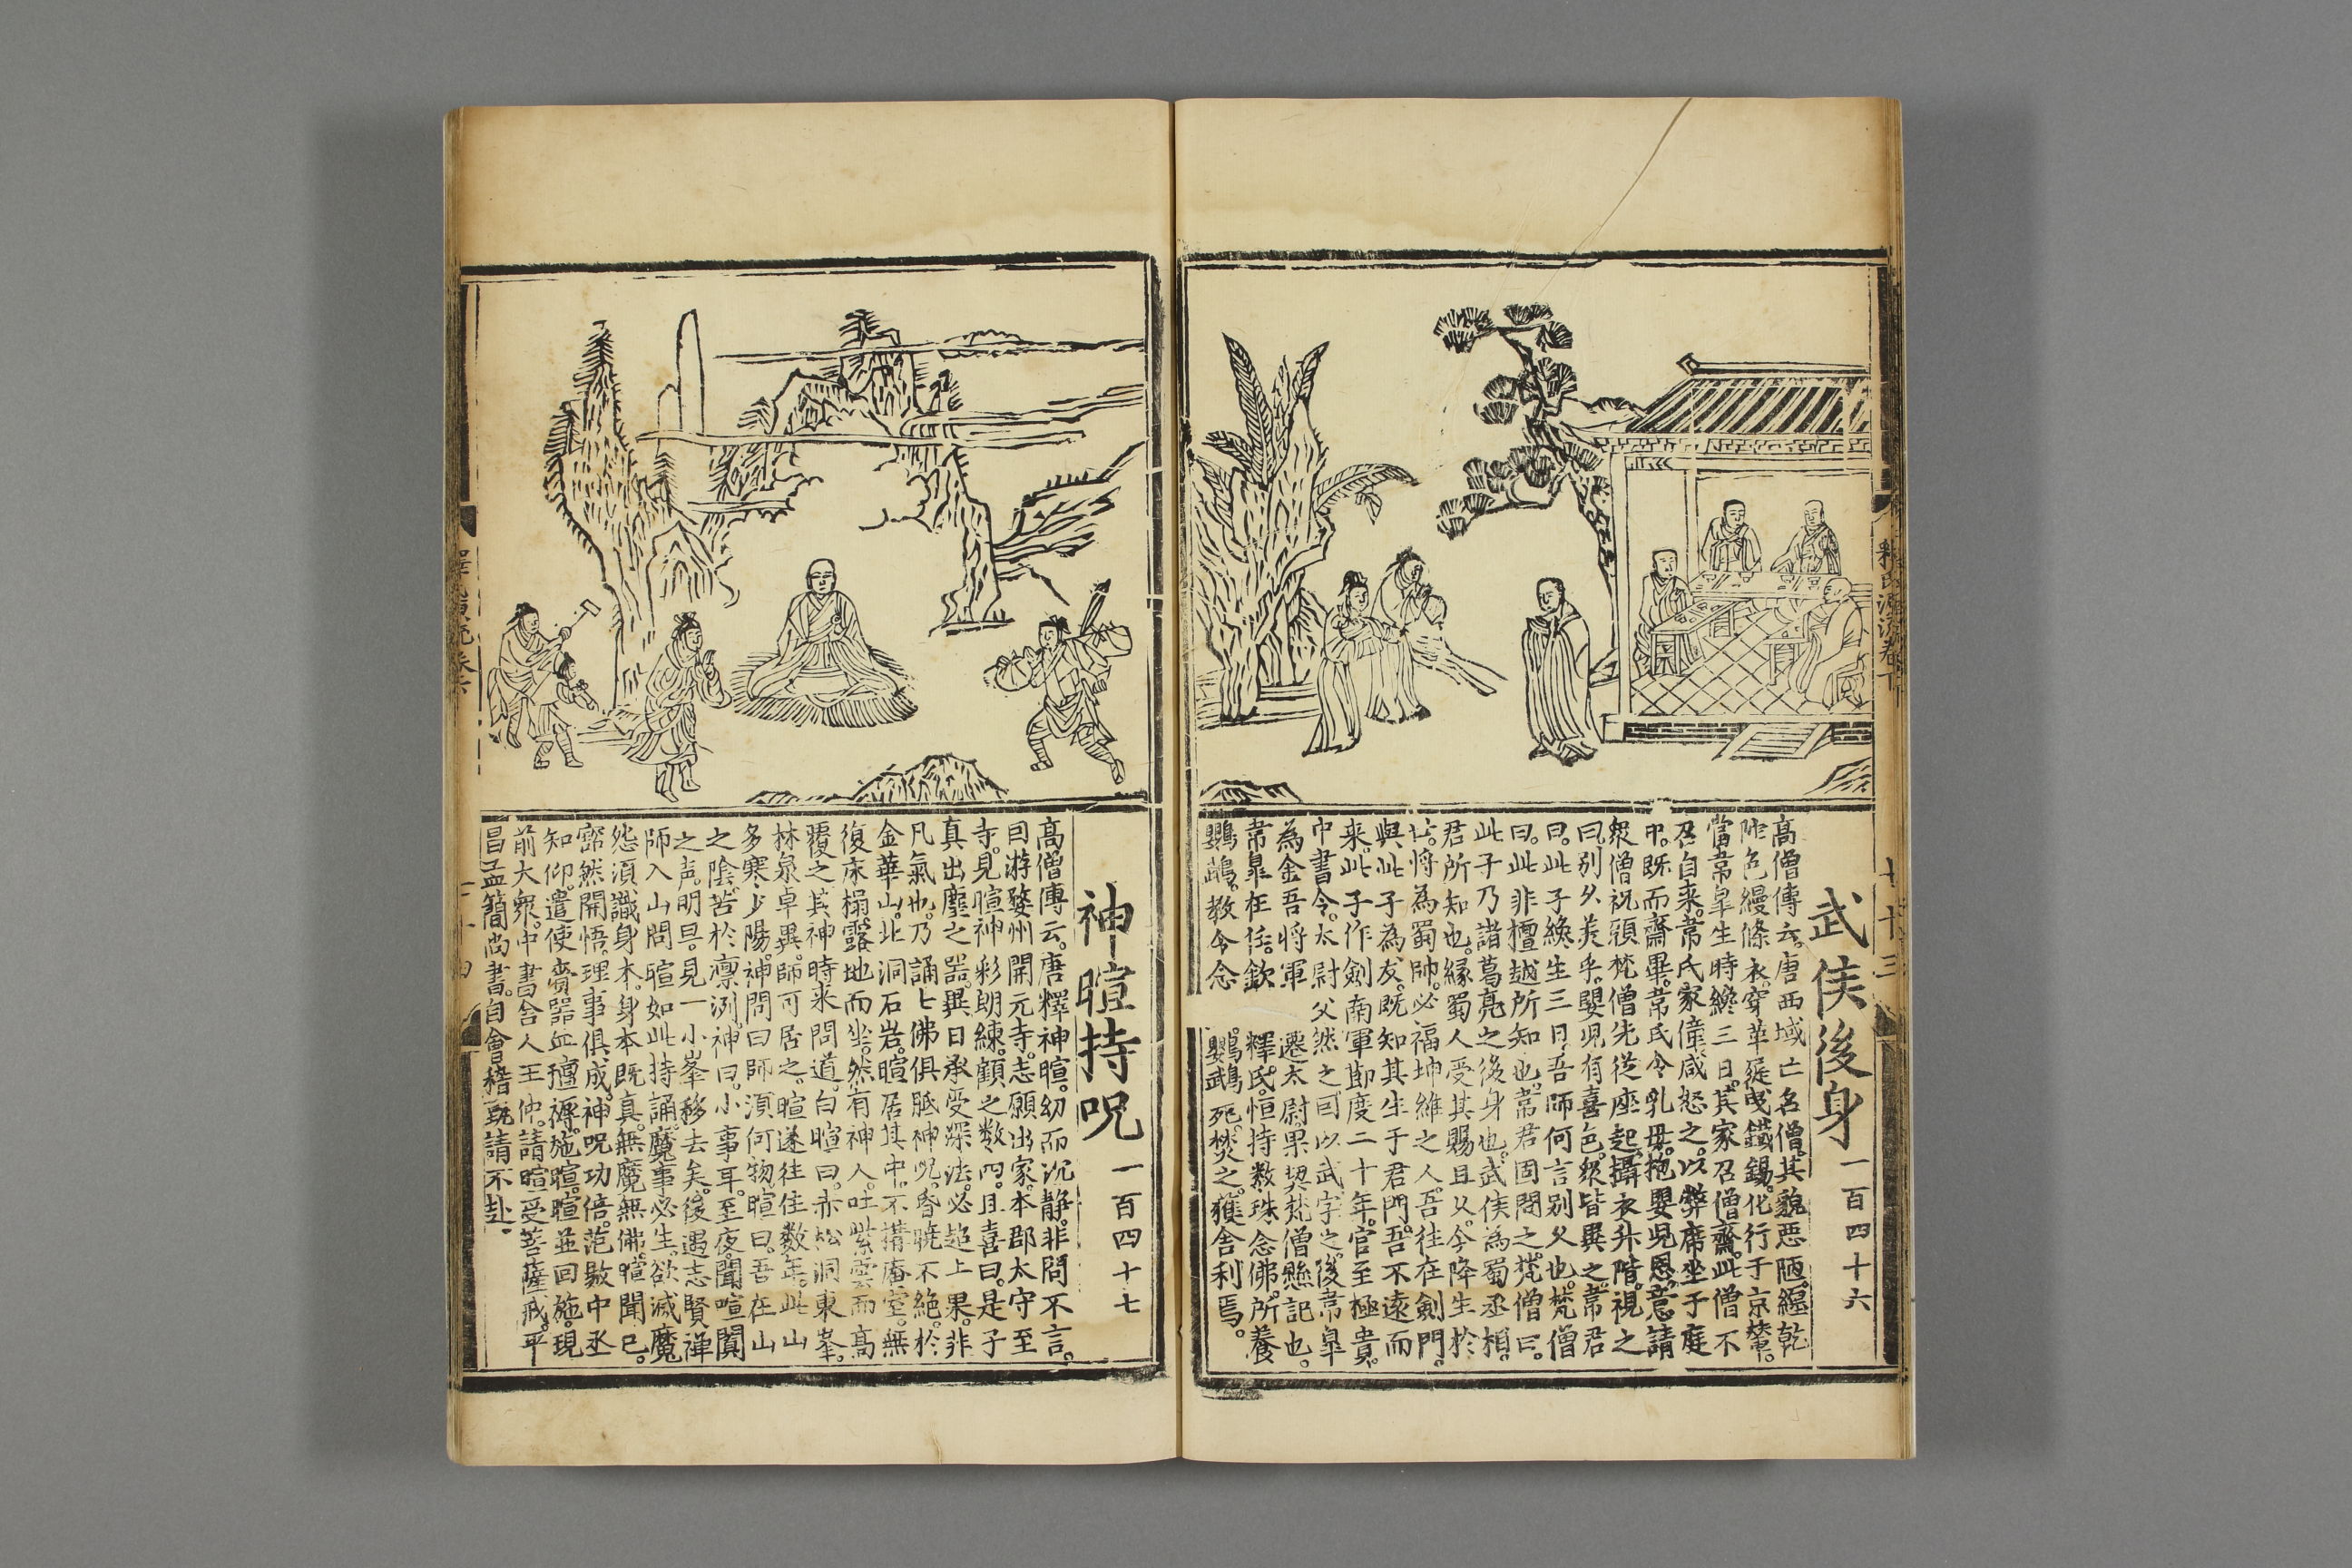 武侯後身一百四十六
高僧傳云。唐西域亡名僧。其貌惡陋。纏乾
陁色縵條衣。穿革屣曳鐵錫。化行于京輦。
當韋皐生時纔三日。其家召僧齋。此僧不
召自来。韋氏家僮咸怒之。以弊席坐于庭
中。既而齋畢。韋氏令乳母抱嬰兒恩意請
衆僧祝願梵僧先從座起。攝衣升階。視之
曰。别久羙乎。嬰児有喜色。衆皆異之。韋君
曰。此子纔生三日。吾師何言别久也。梵僧
曰。此非檀越所知也。韋君固問之。梵僧曰。
此子乃諸葛亮之後身也。武侯為蜀丞相。
君所知也。緣蜀人受其賜且久。今降生於
世。将為蜀帥。必福坤維之人。吾往在劍門。
與此子為友。既知其生于君門。吾不遠而
来。此子作劍南軍節度二十年。官至極貴。
中書令。太尉父然之。因以武字之。後韋皐
為金吾将軍遷太尉。果契梵僧懸記也。
韋皐在任。欽釋氏。恒持数珠念佛。所養
鸚鵡。教令念。鸚鵡死。焚之。獲舍利焉。
釋氏源流卷下
七十三
神暄持呪一百四十七
高僧傳云。唐釋神暄。幼而沉静。非問不言。
因游婺州開元寺。志願出家。本郡太守至
寺。見暄神彩朗練。顧之数四。且喜曰。是子
真出塵之噐。異日承受深法。必超上果。非
凡氣也。乃誦七佛俱胝神呪。昏曉不絶。於
金華山。北洞石岩。暄居其中。不搆庵室。無
復床榻。露地而坐。然有神人。吐紫雲而高
覆之其神時来問道。白暄曰。赤松洞東峯。
林泉卓異。師可居之。暄遂往住數年。此山
多寒少陽。神問曰師須何物暄曰。吾在山
之陰。苦於凛冽。神曰。小事耳。至夜。聞喧闐
之声。明旦。見一小峯移去矣。後遇志賢禅
師入山問暄如此持誦。魔事必生。欲滅魔
怨須識身本。身本既真。無魔無佛。暄聞已。
豁然開悟。理事俱成。神呪功倍。范敭中丞
知仰。遣使賫噐皿氊褥。施暄。暄並回施。現
前大衆。中書舍人王仲。請暄受菩薩戒。平
昌孟簡尚書。自會稽致請不赴。